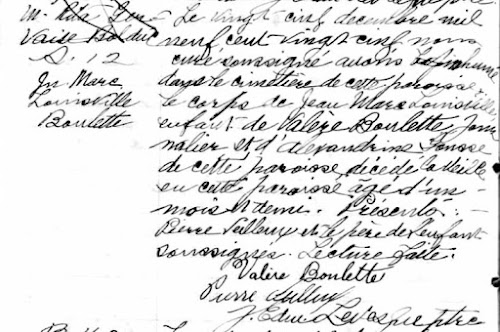 Vaise Bolduc
S. 12
Jn Marc
Louisville
Boulette
Le vingt cinq decembre mil
neuf cent vingt cinq nous
curé soussigné avons inhumé
dans le cimetière de cette paroisse
le corps de Jean Marc Louisville,
enfant de Valère Boulette, jour
nalier et d'Alexandrine
de cette paroisse décédé la veille
en cette paroisse âgé d'un
mois et demi. Présents:
Pierre et le père de l'enfant
soussignés. Lecture faite.
Valère Boulette
Pierre
J. Edm. Levesque ptre